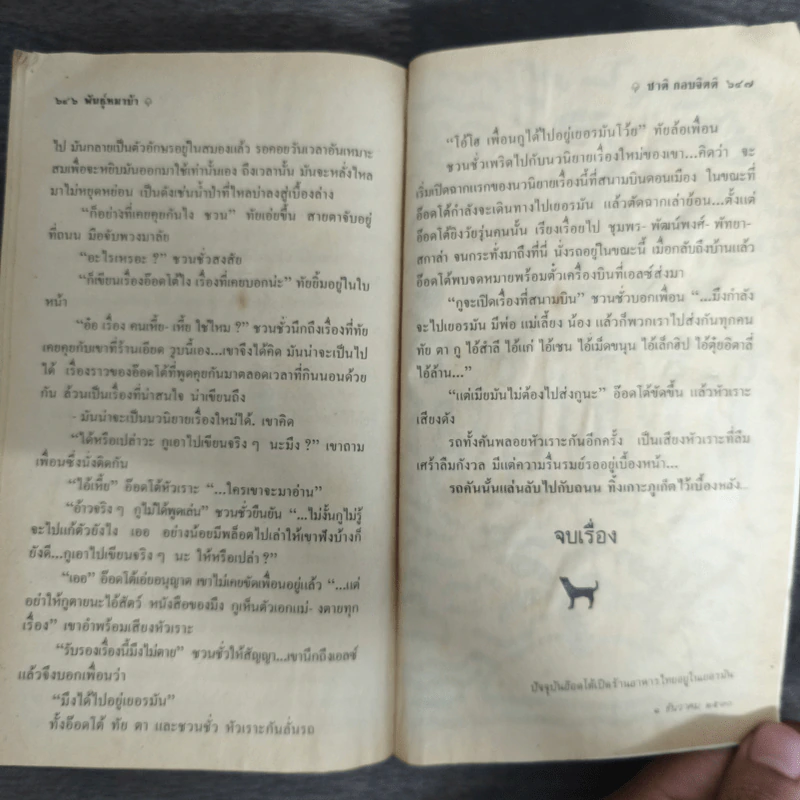 ๖๔๖ พันธุ์หมาบ้า
ไป มันกลายเป็นตัวอักษรอยู่ในสมองแล้ว รอคอยวันเวลาอันเหมาะ
สมเพื่อจะหยิบมันออกมาใช้เท่านั้นเอง ถึงเวลานั้น มันจะหลั่งไหล
มาไม่หยุดหย่อน เป็นดังเช่นน้ำป่าที่ไหลบ่าลงสู่เบื้องล่าง
“ก็อย่างที่เคยคุยกันไง ชวน” ทัยเอ่ยขึ้น สายตาจับอยู่
ที่ถนน มือจับพวงมาลัย
“อะไรเหรอะ ?” ชวนชั่วสงสัย
“ก็เขียนเรื่องอ๊อดโต้ไง เรื่องที่เคยบอกน่ะ” ทัยยิ้มอยู่ในใบ
หน้า
“อ๋อ เรื่อง คนเหี้ย- เหี้ย ใช่ไหม ?” ชวนชั่วนึกถึงเรื่องที่ทัย
เคยคุยกับเขาที่ร้านเอียด วูบนี้เอง...เขาจึงได้คิด มันน่าจะเป็นไป
ได้ เรื่องราวของอ๊อดโต้ที่พูดคุยกันมาตลอดเวลาที่กินนอนด้วย
กัน ล้วนเป็นเรื่องที่น่าสนใจ น่าเขียนถึง
- มันน่าจะเป็นนวนิยายเรื่องใหม่ได้. เขาคิด
“ได้หรือเปล่าวะ กูเอาไปเขียนจริง ๆ นะมึง ?” เขาถาม
เพื่อนซึ่งนั่งติดกัน
“ไอ้เหี้ย” อ๊อดโต้หัวเราะ “...ใครเขาจะมาอ่าน”
“อ้าวจริง ๆ กูไม่ได้พูดเล่น” ชวนชั่วยืนยัน “...ไม่งั้นกูไม่รู้
จะไปแก้ตัวยังไง เออ อย่างน้อยมีพล็อตไปเล่าให้เขาฟังบ้างก็
ยังดี...กูเอาไปเขียนจริง ๆ นะ ให้หรือเปล่า ?”
“เออ” อ๊อดโต้เอ่ยอนุญาต เขาไม่เคยขัดเพื่อนอยู่แล้ว “...แต่
อย่าให้กูตายนะไอ้สัตว์ หนังสือของมึง กูเห็นตัวเอกแม่- งตายทุก
เรื่อง” เขาอำพร้อมเสียงหัวเราะ
“รับรองเรื่องนี้มึงไม่ตาย” ชวนชั่วให้สัญญา...เขานึกถึงเอลซ์
แล้วจึงบอกเพื่อนว่า
“มึงได้ไปอยู่เยอรมัน”
ทั้งอ๊อดโต้ ทัย ตา และชวนชั่ว หัวเราะกันลั่นรถ
ชาติ กอบจิตติ ๖๔๗
“โอ้โฮ เพื่อนกูได้ไปอยู่เยอรมันโว้ย” ทัยล้อเพื่อน
ชวนชั่วเพริดไปกับนวนิยายเรื่องใหม่ของเขา...คิดว่า จะ
เริ่มเปิดฉากแรกของนวนิยายเรื่องนี้ที่สนามบินดอนเมือง ในขณะที่
อ๊อดโต้กำลังจะเดินทางไปเยอรมัน แล้วตัดฉากเล่าย้อน...ตั้งแต่
อ๊อดโต้ยิงวัยรุ่นคนนั้น เรียงเรื่อยไป ชุมพร- พัฒน์พงศ์- พัทยา-
สกาล่า จนกระทั่งมาถึงที่นี่ นั่งรถอยู่ในขณะนี้ เมื่อกลับถึงบ้านแล้ว
อ๊อดโต้พบจดหมายพร้อมตั๋วเครื่องบินที่เอลซ์ส่งมา
“กูจะเปิดเรื่องที่สนามบิน” ชวนชั่วบอกเพื่อน “...มึงกำลัง
จะไปเยอรมัน มีพ่อ แม่เลี้ยง น้อง แล้วก็พวกเราไปส่งกันทุกคน
ทัย ตา กู ไอ้สำลี ไอ้แก่ ไอ้เชน ไอ้เม็ดขนุน ไอ้เล็กฮิป ไอ้ตุ๋ยอิตาลี่
ไอ้ล้าน...”
“แต่เมียมันไม่ต้องไปส่งกูนะ” อ๊อดโต้ขัดขึ้น แล้วหัวเราะ
เสียงดัง
รถทั้งคันพลอยหัวเราะกันอีกครั้ง เป็นเสียงหัวเราะที่ลืม
เศร้าลืมกังวล มีแต่ความรื่นรมย์รออยู่เบื้องหน้า...
รถคันนั้นแล่นลับไปกับถนน ทิ้งเกาะภูเก็ตไว้เบื้องหลัง..
จบเรื่อง
ปัจจุบันอ๊อดโต้เปิดร้านอาหารไทยอยู่ในเยอรมัน
๑ ธันวาคม ๒๕๓๐